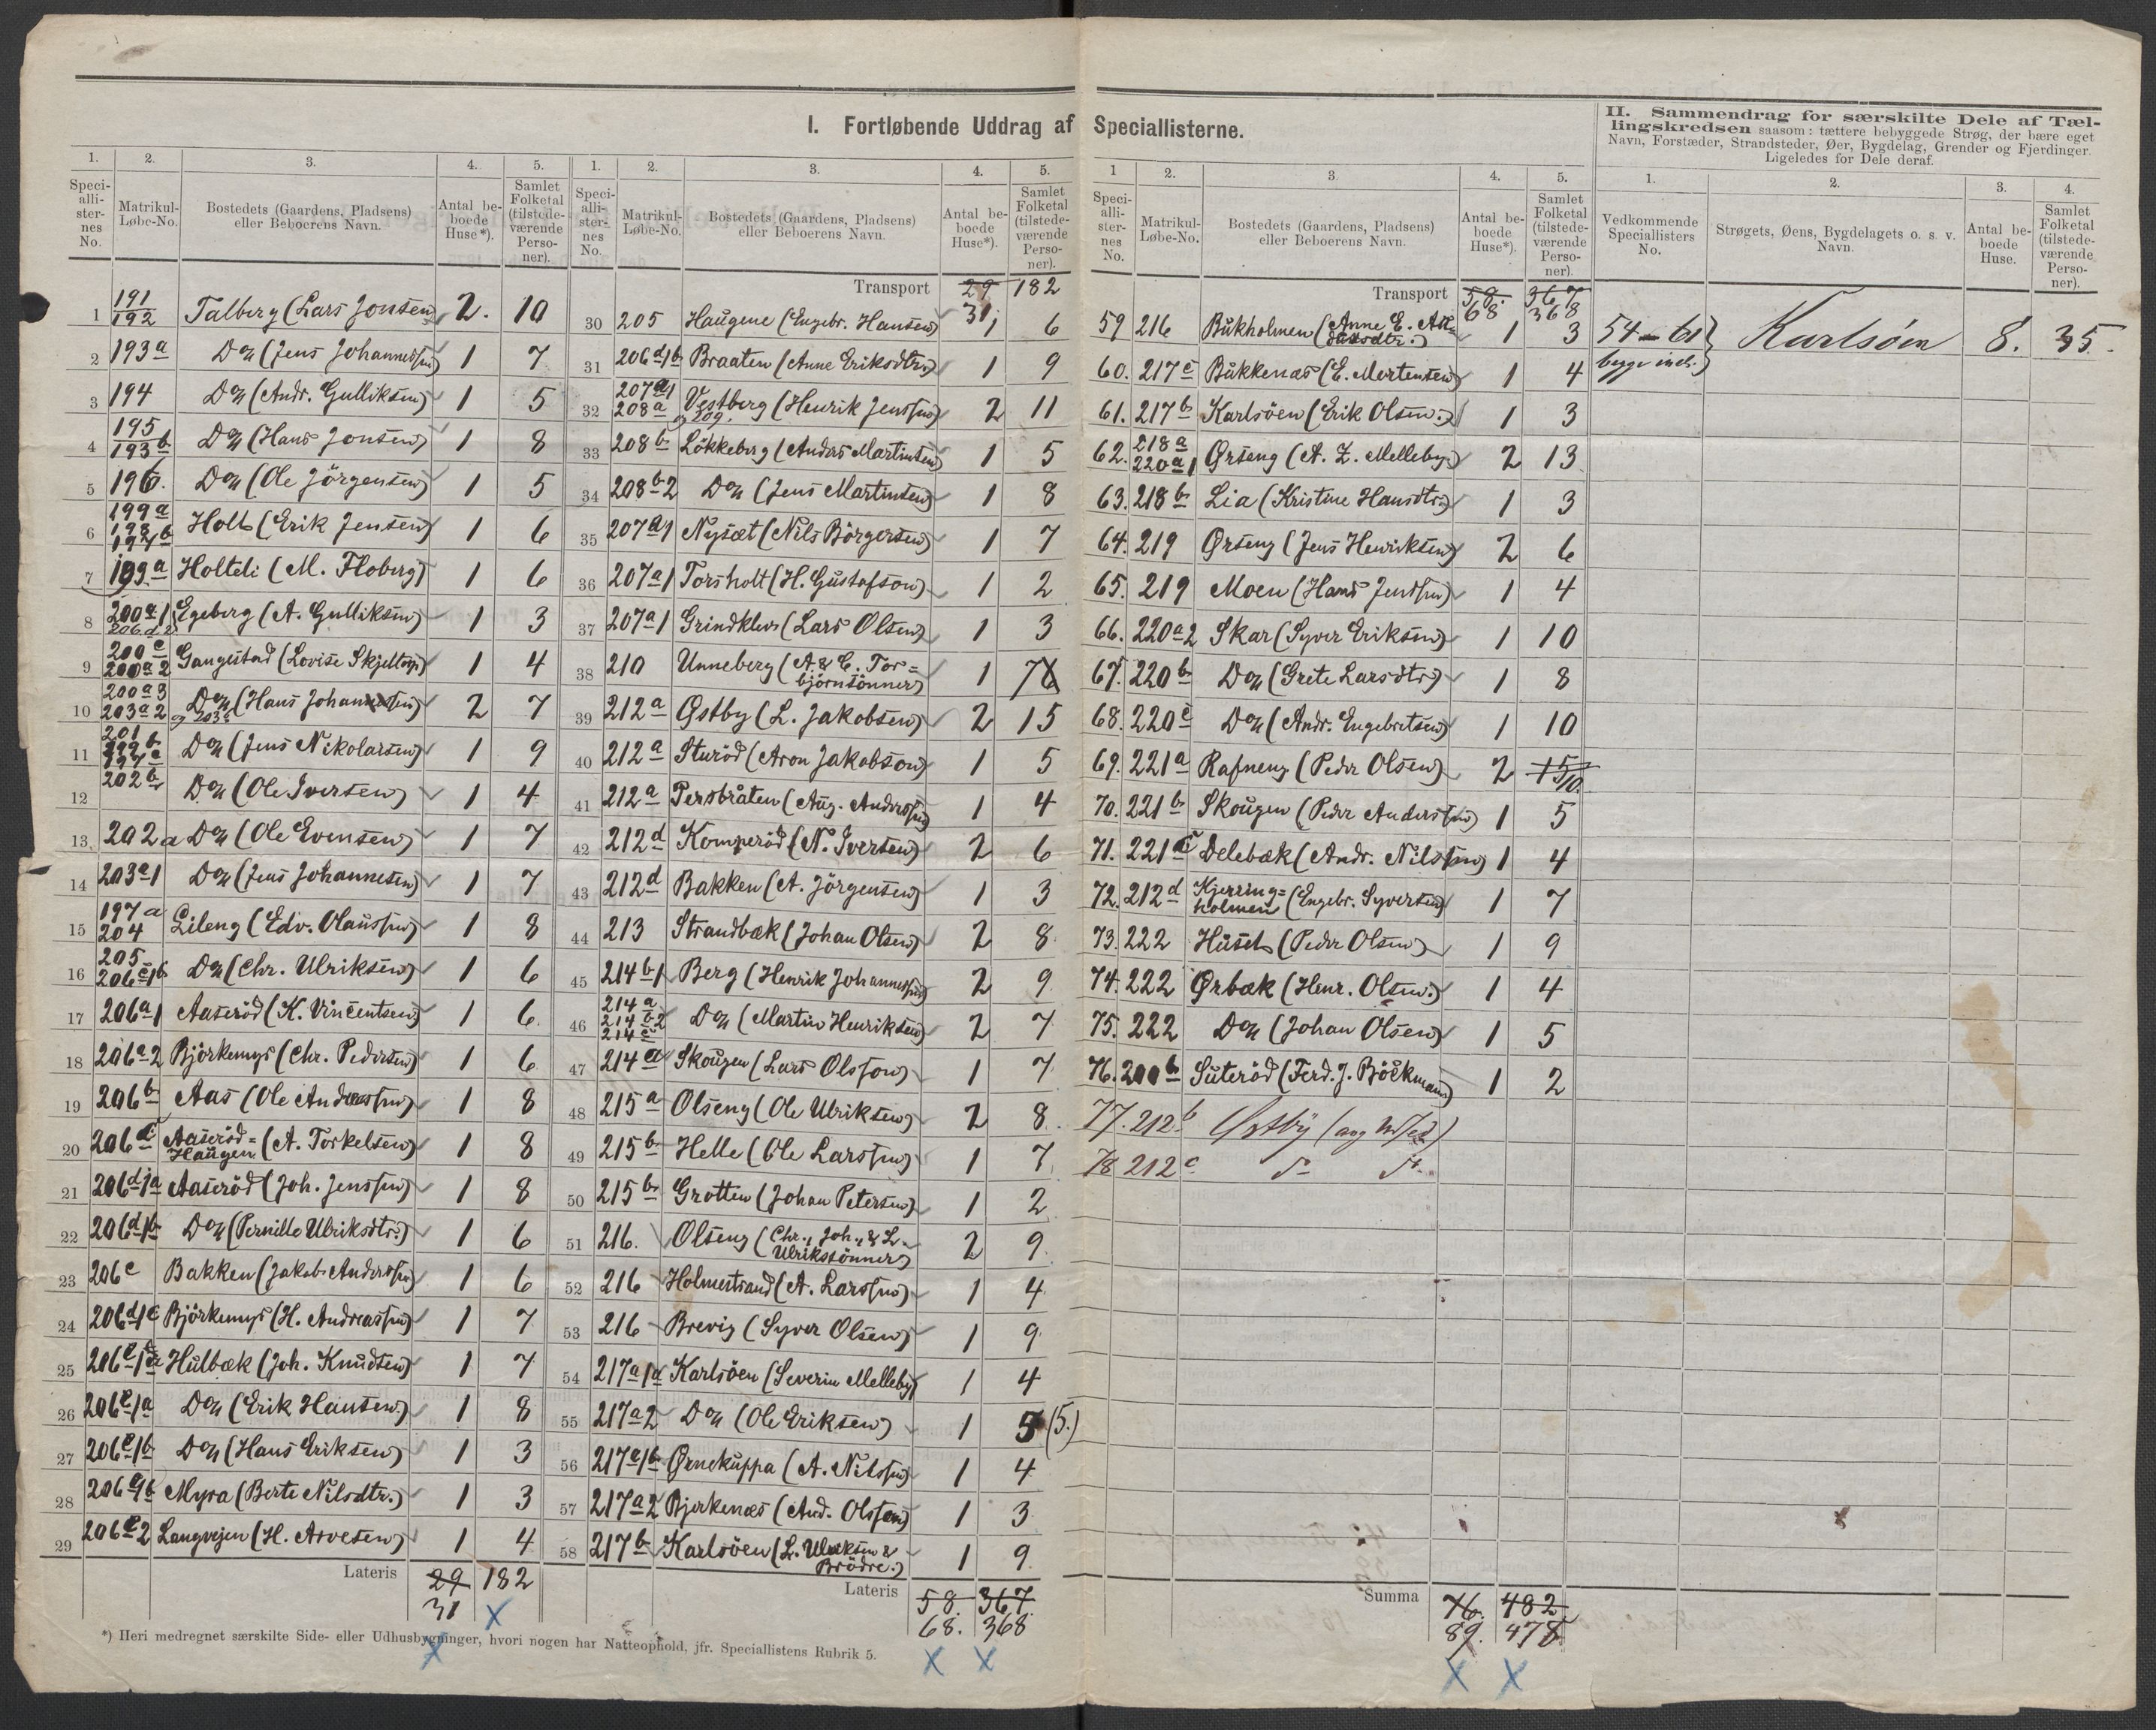 I. Fortløbende Uddrag af Speciallisterne.
II. Sammendrag for særskilte Dele af Tæl-
lingskredsen saasom: tættere bebyggede Strøg, der bære eget
Navn, Forstæder, Strandsteder, Øer, Bygdelag, Grender og Fjerdinger.
Ligeledes for Dele deraf.
1. 2. 3. 4. 5.
Speci-
alli-
ster-
nes
No.
Matrikul-
Løbe-No.
Bostedets (Gaardens, Pladsens)
eller Beboerens Navn.
Antal be-
boede
Huse*).
Samlet
Folketal
(tilstede-
værende
Perso-
ner).
1 191/192 Talberg (Lars Jonsen) 2. 10
2 193a Do (Jens Johannessen) 1 7
3 194 Do (Andr. Gulliksen) 1 5
4 195/193b Do (Hans Jonsen) 1 8
5 196. Do (Ole Jörgensen) 1 5
6 199a 198 197b Holt (Erik Jensen) 1 6
7 193a Holteli (M. Floberg) 1 6
8 200a1 206.d.2 Egeberg (A. Gulliksen) 1 3
9 200c 200a2 Gangestad (Lovise Skjeltorp) 1 4
10 200a3 203a2 Do (Hans Johannesen) 2 7
11 201 199b 197c Do (Jens Nikolaisen) 1 9
12 202b Do (Ole Iversen) 1 4
13. 202a Do (Ole Evensen) 1 7
14 203a1 Do (Jens Johannesen) 1 7
15 197a 204 Lileng (Edv. Olaussen) 1 8
16 205 206c1b Do (Chr. Ulriksen) 1 6
17 206a1 Aaseröd (K. Vincentsen) 1 6
18 206a2 Björkemyr (Chr. Pedersen) 1 6
19 206b Aas (Ole Andreassen) 1 8
20 206c Aaseröd=
Haugen (A. Torkelsen) 1 8
21 206d1a Aaseröd (Joh. Jenssen) 1 8
22 206d1b Do (Pernille Ulriksdtr.) 1 6
23 206c Bakken (Jakob Anderssen) 1 6
24 206d1c Björkemyr (H. Andreassen) 1 7
25 206e1a Hulbæk (Joh. Knudsen) 1 7
26 206e1a Do (Erik Hansen) 1 8
27 206e1b Do (Hans Eriksen) 1 3
28 206e1b Myra (Berte Nilsdtr.) 1 3
29 206e2 Langvejen (H. Arvesen) 1 4
Lateris 29 182
31
1. 2. 3. 4. 5.
Speci-
alli-
ster-
nes
No.
Matrikul-
Løbe-No.
Bostedets (Gaardens, Pladsens)
eller Beboerens Navn.
Antal be-
boede
Huse*).
Samlet
Folketal
(tilstede-
værende
Perso-
ner).
Transport 29 182
31
30 205 Haugene (Engebr. Hansen) 1 6
31 206d1b Braaten (Anne Eriksdtr.) 1 9
32 207a1 208a og 209. Vestberg (Henrik Jenssen) 2 11
33 208b Lökkeberg (Anders Martinsen) 1 5
34 208b2 Do (Jens Martinsen) 1 8
35 207a1 Nysæt (Nils Börgersen) 1 7
36 207a1 Torsholt (H. Gustafson) 1 2
37 207a1 Grindklev (Lars Olsen) 1 3
38 210 Unneberg (A. & C. Tor=
björnsönner) 1 7
39 212a Østby (L. Jakobsen) 2 15
40 212a Sturöd (Aron Jakobson) 1 5
41 212a Persbråten (Aug. Anderssen) 1 4
42 212d Komperöd (N. Iversen) 2 6
43 212d Bakken (A. Jörgensen) 1 3
44 213 Strandbæk (Johan Olsen) 2 8
45 214b1 Berg (Henrik Johannessen) 2 9
46 214a 214b2 214c Do (Martin Henriksen) 2 7
47 214a Skougen (Lars Olsson) 1 7
48 215a Olseng (Ole Ulriksen) 2 8
49 215b Helle (Ole Larssen) 1 7
50 215b Grotten (Johan Petersen) 1 2
51 216. Olseng (Chr., Joh., & L.
Ulrikssönner) 2 9
52 216 Holmestrand (A. Larssen) 1 4
53 216 Brevig (Syver Olsen) 1 9
54 217a1a Karlsöen (Severin Melleby) 1 4
55 217a2 Do (Ole Eriksen) 1 5 (5.)
56 217a1b Ørnekuppa (A. Nilssen) 1 4
57 217a2 Bjerkenæs (And. Olssen) 1 3
58 217b Karlsöen (L. Ulriksen &
Brödre.) 1 9
Lateris 58. 367.
68. 368
1 2. 3. 4. 5.
Speci-
alli-
ster-
nes
No.
Matrikul-
Løbe-No.
Bostedets (Gaardens, Pladsens)
eller Beboerens Navn.
Antal be-
boede
Huse*).
Samlet
Folketal
(tilstede-
værende
Perso-
ner).
Transport 58. 367
68 368
59 216 Bukholmen (Anne E. 1 3
60. 217c Bukkenæs (E. Mortensen) 1 4
61. 217b Karlsöen (Erik Olsen.) 1 3
62. 218a 220a1 Ørseng (A. Z. Melleby.) 2 13
63. 218b Lia (Kristine Hansdtr.) 1 3
64. 219 Ørseng (Jens Henriksen) 2 6
65. 219 Moen (Hans Jenssen) 1 4
66. 220a2 Skar (Syver Eriksen) 1 10
67. 220b Do (Grete Larsdtr.) 1 8
68. 220c Do (Andr. Engebretsen) 1 10
69. 221a Rafneng (Peder Olsen) 2 10.
70. 221b Skougen (Peder Anderssen) 1 5
71. 221c Delebæk (Andr. Nilssen) 1 4
72. 212d Kjerring=
holmen (Engebr. Syversen) 1 7
73. 222 Huset (Peder Olsen) 1 9
74. 222 Ørbæk (Henr. Olsen.) 1 4
75. 222 Do (Johan Olsen) 1 5
76. 200b Suteröd (Ferd. J. Böckman) 1 2
77. 212b Østby
78 212c
Summa 76. 482
89. 478
1. 2. 3. 4.
Vedkommende
Speciallisters
No.
Strøgets, Øens, Bygdelagets o. s. v.
Navn.
Antal be-
boede
Huse.
Samlet
Folketal
(tilstede-
værende
Perso-
ner).
54-61 Karlsöen 8. 35.
begge incl.
*) Heri medregnet særskilte Side- eller Udhusbygninger, hvori nogen har Natteophold, jfr. Speciallistens Rubrik 5.